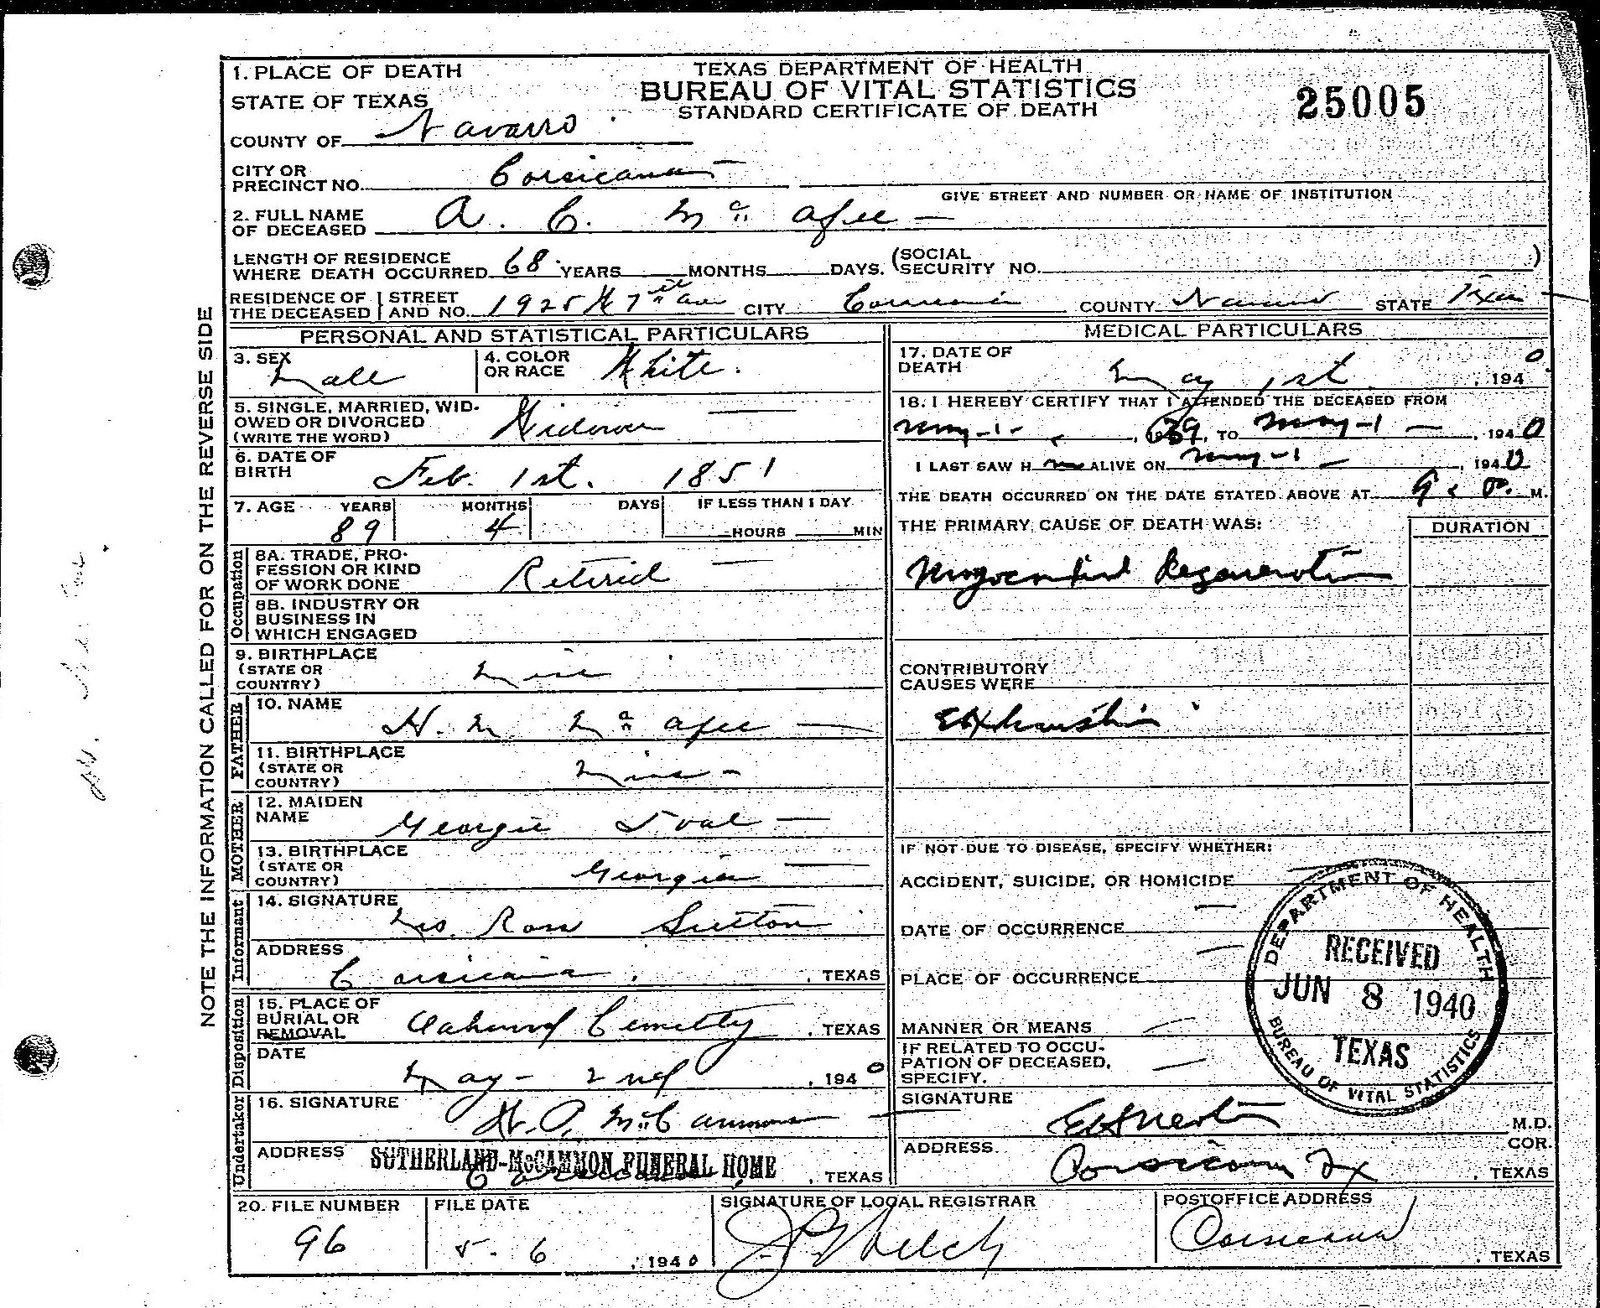 1. PLACE OF DEATH
STATE OF TEXAS
COUNTY OF Navarro
TEXAS DEPARTMENT OF HEALTH
BUREAU OF VITAL STATISTICS
STANDARD CERTIFICATE OF DEATH
25005
CITY OR PRECINCT NO. Corsicana
GIVE STREET AND NUMBER OR NAME OF INSTITUTION
2. FULL NAME OF DECEASED A. C. McAfee
LENGTH OF RESIDENCE WHERE DEATH OCCURRED 68 YEARS MONTHS DAYS. (SOCIAL SECURITY NO. )
RESIDENCE OF THE DECEASED STREET AND NO. 1925 W 7th Ave CITY Corsicana COUNTY Navarro STATE Texas
NOTE THE INFORMATION CALLED FOR ON THE REVERSE SIDE
PERSONAL AND STATISTICAL PARTICULARS
3. SEX Male
4. COLOR OR RACE White.
5. SINGLE, MARRIED, WIDOWED OR DIVORCED (WRITE THE WORD) Widower
6. DATE OF BIRTH Feb. 1st. 1851
7. AGE YEARS MONTHS DAYS IF LESS THAN 1 DAY
89 4 HOURS MIN
Occupation
8A. TRADE, PROFESSION OR KIND OF WORK DONE Retired
8B. INDUSTRY OR BUSINESS IN WHICH ENGAGED
9. BIRTHPLACE (STATE OR COUNTRY) Miss
FATHER
10. NAME H. M. McAfee
11. BIRTHPLACE (STATE OR COUNTRY) Miss
MOTHER
12. MAIDEN NAME Georgie
13. BIRTHPLACE (STATE OR COUNTRY) Georgia
Informant
14. SIGNATURE Mrs. Ross Sutton
ADDRESS Corsicana, TEXAS
Disposition
15. PLACE OF BURIAL OR REMOVAL Oakwood Cemetery, TEXAS
DATE May 2nd, 1940
Undertaker
16. SIGNATURE McCammon
ADDRESS SUTHERLAND-McCAMMON FUNERAL HOME
Corsicana, TEXAS
MEDICAL PARTICULARS
17. DATE OF DEATH May 1st, 1940
18. I HEREBY CERTIFY THAT I ATTENDED THE DECEASED FROM
May-1-, 1939, TO May-1-, 1940
I LAST SAW HIM ALIVE ON May-1-, 1940
THE DEATH OCCURRED ON THE DATE STATED ABOVE AT 9 P. M.
THE PRIMARY CAUSE OF DEATH WAS: DURATION
Myocardial Degeneration
CONTRIBUTORY CAUSES WERE
Exhaustion
IF NOT DUE TO DISEASE, SPECIFY WHETHER:
ACCIDENT, SUICIDE, OR HOMICIDE
DATE OF OCCURRENCE
PLACE OF OCCURRENCE
MANNER OR MEANS
IF RELATED TO OCCUPATION OF DECEASED, SPECIFY.
DEPARTMENT OF HEALTH
RECEIVED
JUN 8 1940
TEXAS
BUREAU OF VITAL STATISTICS
SIGNATURE M.D. COR.
ADDRESS Corsicana Tx, TEXAS
20. FILE NUMBER 96
FILE DATE 5-6, 1940
SIGNATURE OF LOCAL REGISTRAR Welch
POSTOFFICE ADDRESS Corsicana, TEXAS